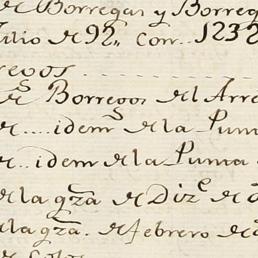 de Borregas y Borreg
Julio de 92,, con... 1232
regos
de Borregos del Arre
de.... idem.s de la Puma
de... idem de la Puma
de la gza de Diz.e de
de la gza. de febrero de